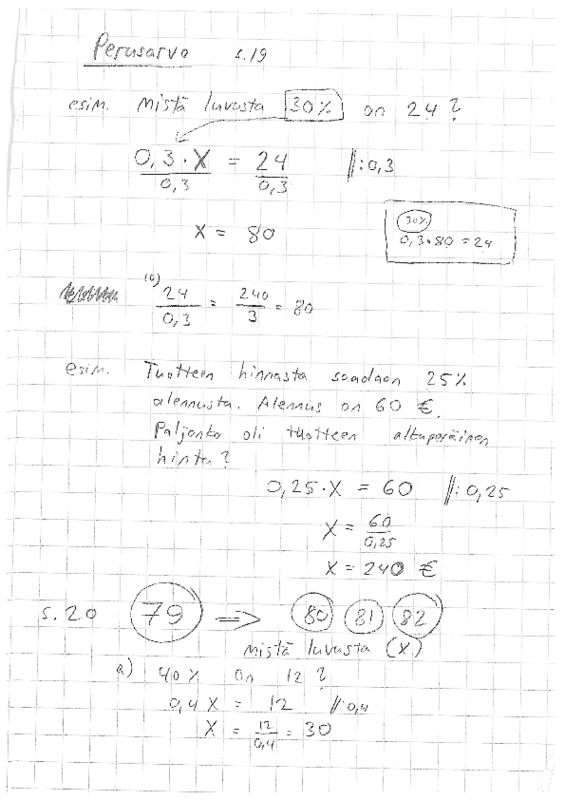 Perusarvo s.19
esim. Mistä luvusta 30% on 24?
0,3·X / 0,3 = 24 / 0,3 ||:0,3
X = 80
30%
0,3·80 = 24
10) 24 / 0,3 = 240 / 3 = 80
esim. Tuotteen hinnasta saadaan 25%
alennusta. Alennus on 60 €.
Paljonko oli tuotteen alkuperäinen
hinta?
0,25·X = 60 ||:0,25
X = 60 / 0,25
X = 240 €
s.20 79 => 80 81 82
mistä luvusta (X)
a) 40% on 12?
0,4X = 12 ||:0,4
X = 12 / 0,4 = 30